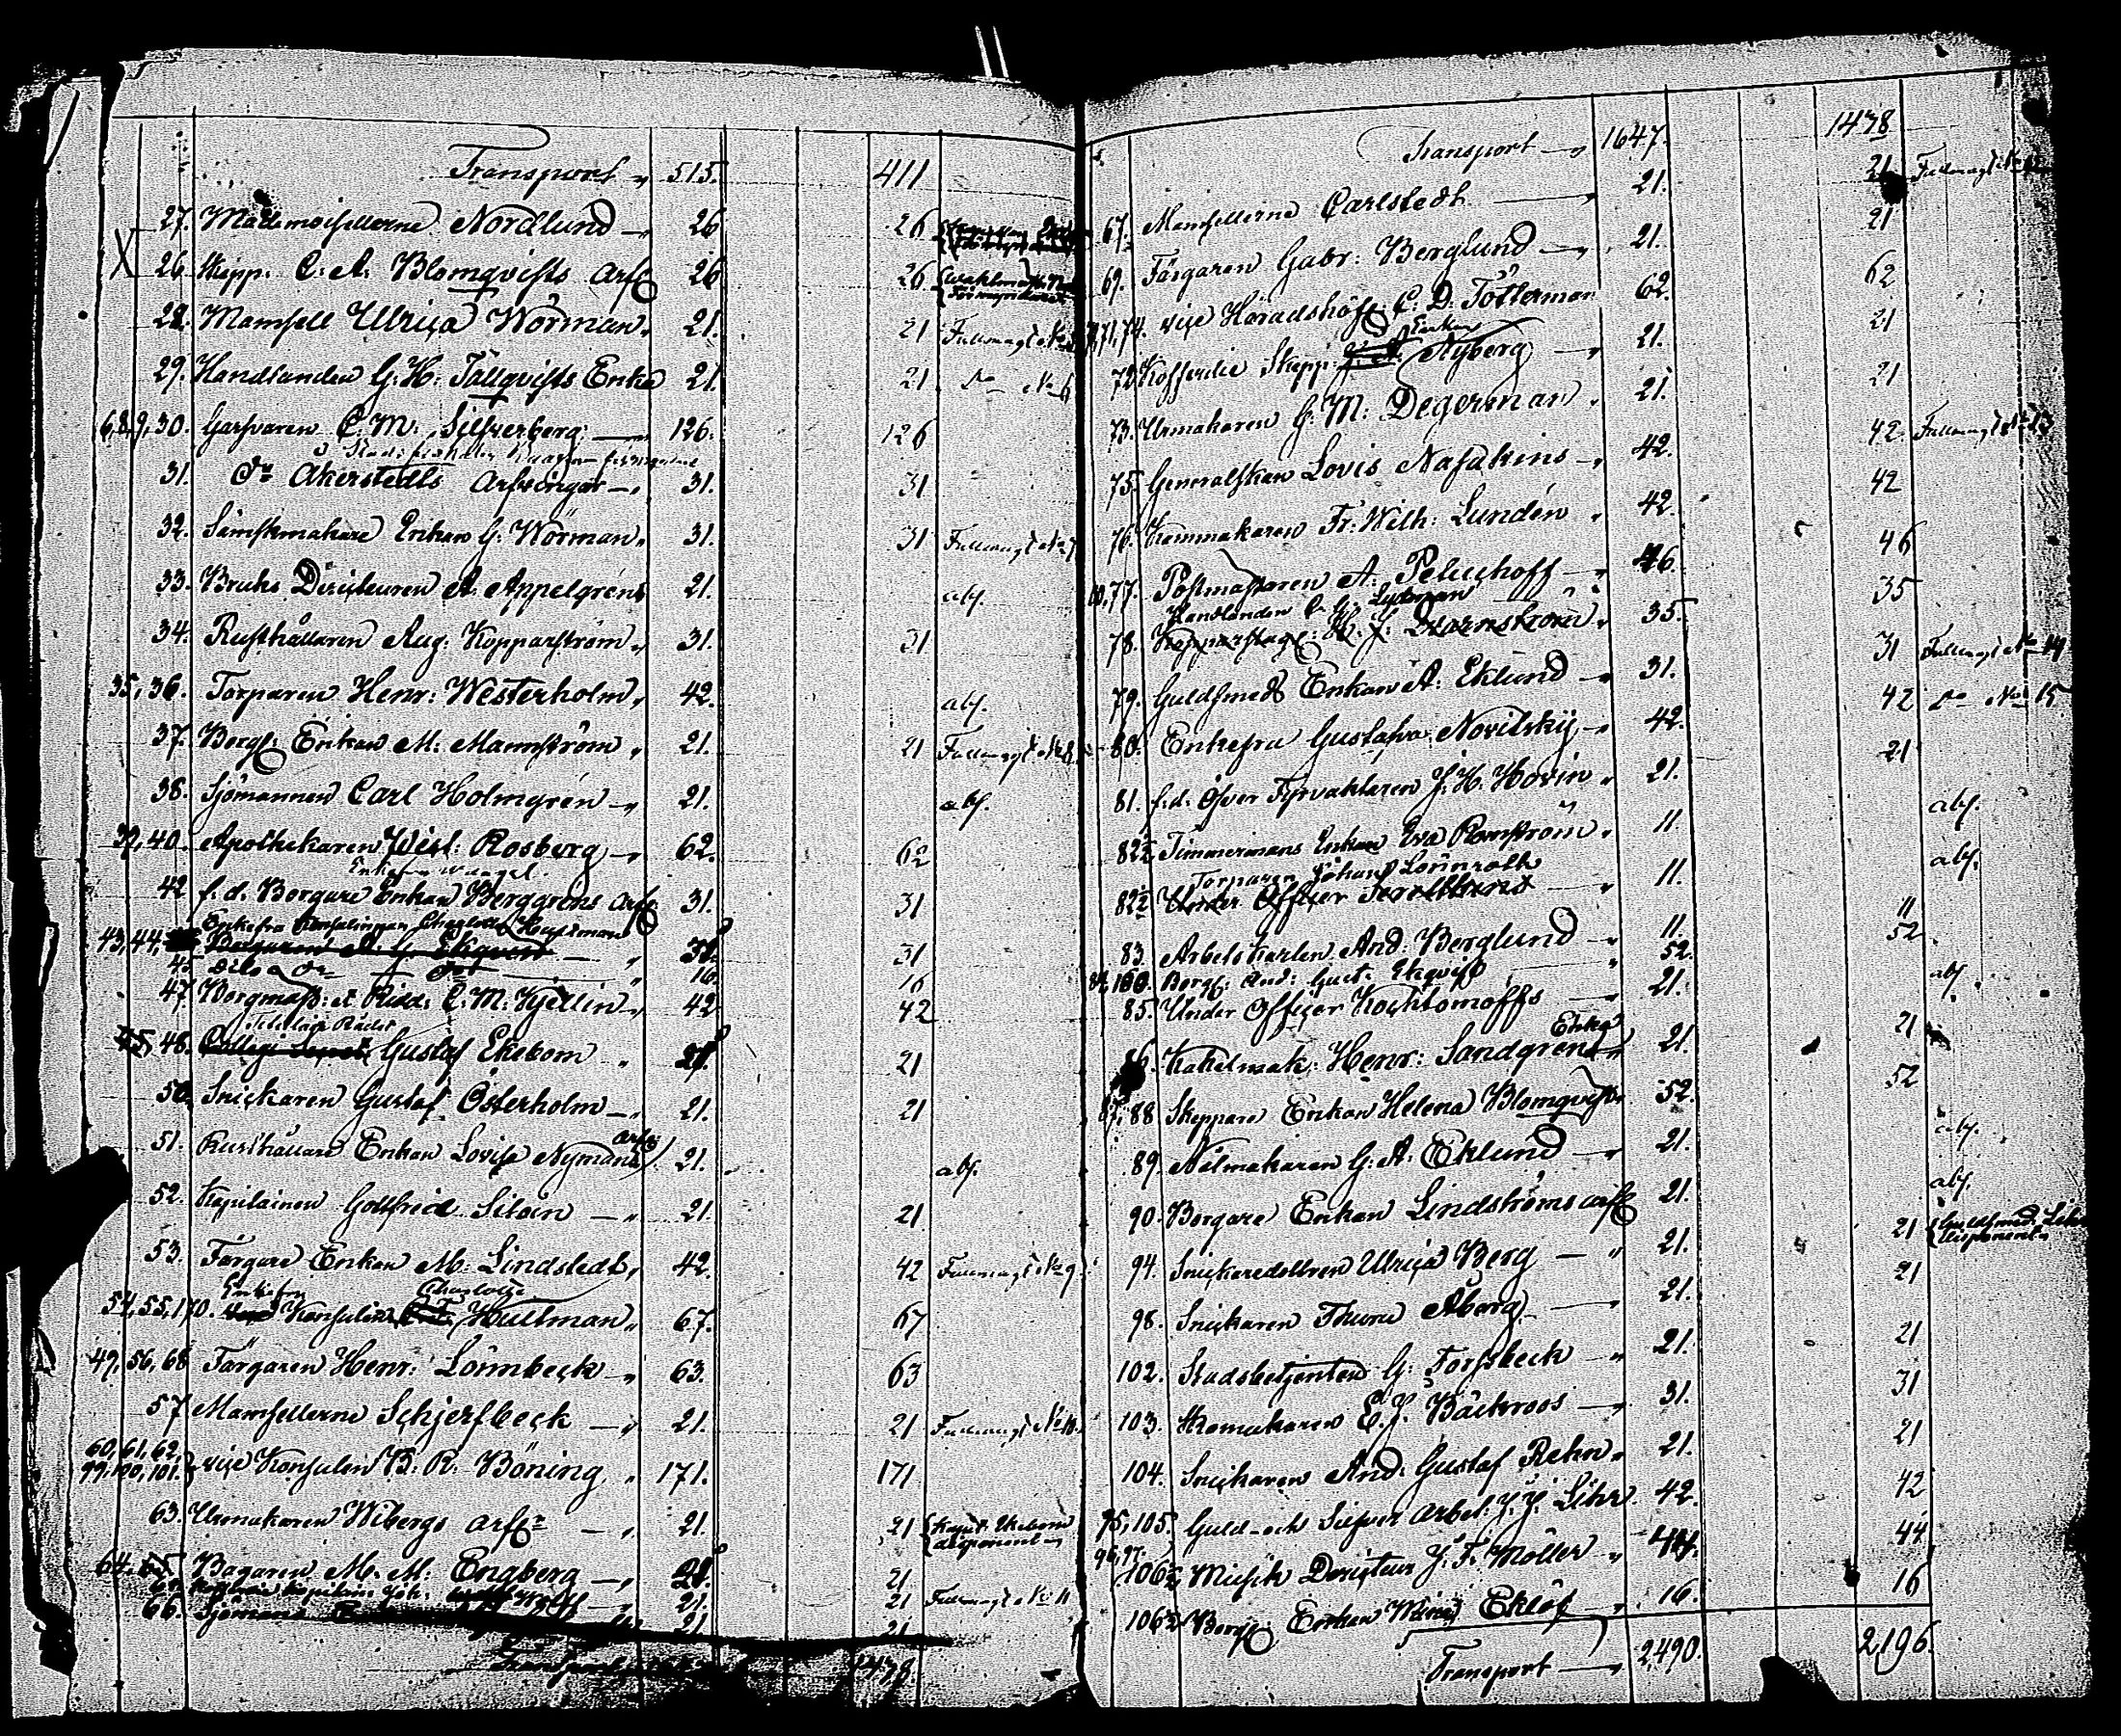 Transport 515. 411
27. Mademoisellerne Nordlund 26 26
26. Skepp. C: A: Blomqvists Arfv 26 26
28. Mamsell Ulrica Wörman 21. 21 Fullmagt No
29. Handlanden G. H: Tällqvists Enka 21. 21 Do No 6
6,8,9,30. Garfvaren C. M: Silfverberg 126. 126
31. Do Åkerstedts Arfvingar 31. 31
32. Sämskmakare Enkan G: Wörman 31. 31 Fullmagt No 7
33. Bruks Directeuren A: Appelgréns 21. abs.
34. Rusthållaren Aug: Kopparström 31. 31
35, 36. Torparen Henr: Westerholm 42. abs.
37. Borg: Enkan M: Mannström 21. 21 Fullmagt No 8
38. Sjömannen Carl Holmgrén 21. abs.
39, 40. Apothekaren Wict: Rosberg 62. 62
42 f. d. Borgare Enkan Berggréns Arfv 31. 31
Enkefru Konsulinnan Charlotta Hultman
43, 44, Borgaren A. G. Ekqvist 31. 31
16. 16
47 Borgmäst: et Ridd: C: M: Kjellin 42 42
Titulair Rådet
45, 48. Gustaf Ekebom 21. 21
50. Snickaren Gustaf Österholm 21. 21
51. Rusthållare Enkan Lovisa Nymans Arfv 21. abs.
52. Kapitainen Gottfried Silén 21. 21
53. Färgare Enkan M: Lindstedt 42. 42 Fullmagt No 9
Enkefru Charlotta
54, 55, 170. Konsulin Hultman 67. 67
49, 56, 68 Färgaren Henr: Lönnbeck 63. 63
57 Mamsellerne Schjerfbeck 21. 21 Fullmagt No 10.
60, 61, 62,
99, 100, 101. vice Konsuln B: R: Böning 171. 171
63. Urmakaren Wibergs Arfvr 21. 21 Kapit: Ekebom
disponent
64, 65. Bagaren M. M: Engberg 21. 21
21. 21 Fullmagt No 11
66. Sjöman 21 21
Transport 1478.
Transport 1647. 1478
67. Mamsellerne Carlstedt 21. 21 Fullmagt No 12
69. Färgaren Gabr: Berglund 21. 21
71, 74. vice Häradshöfd: C: D: Tötterman 62. 62
Enkan
72. Kofferdie Skepp: Nyberg 21. 21
73. Urmakaren G. M: Degerman 21. 21
75. Generalskan Lovis Nasakins 42. 42. Fullmagt No 13
76. Kammakaren Fr: Wilh: Lundén 42. 42
77. Postmästaren A: Peluchoff 46. 46
Handlanden C. G: Lydman
78. Kopparslag: H. J: Warnström 35. 35
79. Guldsmeds Enkan A: Eklund 31. 31 Fullmagt No 14
80. Enkefru Gustafva Novitsky 42. 42 Do No 15
81. f. d. Öfver Fyrvaktaren J: H: Hovin 21. 21
82½ Timmermans Enkan Eva Ramström 11. abs.
Torparen Johan Lönnroth
82½ Under Officer 11. abs.
83. Arbetskarlen And: Berglund 11. 11
84, 160. Borg: And: Gust: Ekqvist 52. 52
85. Under Officer Kochtomoffs 21. abs.
86. Kakelmak: Henr: Sandgrens Enka 21. 21
87, 88 Skeppare Enkan Helena Blomqvist 52. 52
89. Nålmakaren G: A: Eklund 21. abs.
90. Borgare Enkan Lindströms Arfv 21. abs.
94. Snickaredottren Ulrica Berg 21. 21 Guldsmed Lihr
disponent
98. Snickaren Thure Åberg 21. 21
102. Stadsbetjenten G: Forsbeck 21. 21
103. E. J. Bäckroos 31. 31
104. Snickaren And: Gustaf Rehn 21. 21
95, 105 Guld- och Silfver Arbet: J. J. Lihr 42. 42
96, 97.
106½ Musik Directeur J. F. Möller 44. 44
106½ Borg: Enkan Maria Eklöf 16. 16
Transport 2,490. 2,196.